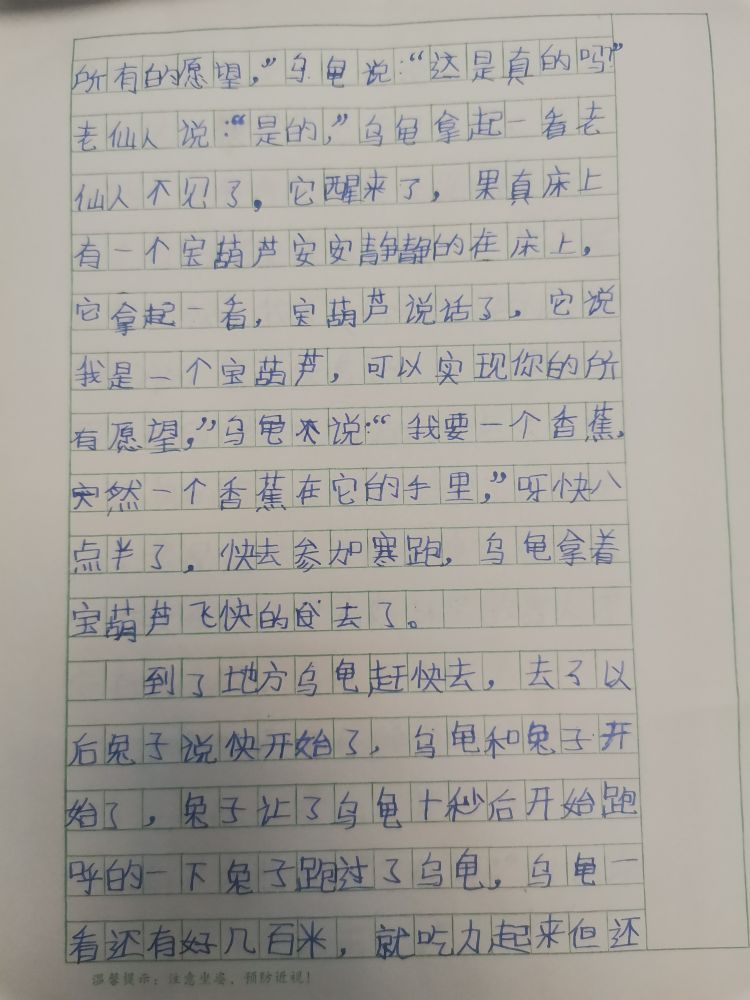 所有的愿望，”乌龟说：“这是真的吗？”
老仙人说：“是的，”乌龟拿起一看老
仙人不见了。它醒来了，果真床上
有一个宝葫芦安安静静的在床上。
它拿起一看，宝葫芦说话了。它说
我是一个宝葫芦，可以实现你的所
有愿望，”乌龟说：“我要一个香蕉，
突然一个香蕉在它的手里，”呀快八
点半了。快去参加寒跑，乌龟拿着
宝葫芦飞快的去了。
到了地方乌龟赶快去，去了以
后兔子说快开始了，乌龟和兔子开
始了，兔子让了乌龟十秒后开始跑
呼的一下兔子跑过了乌龟，乌龟一
看还有好几百米，就吃力起来但还
温馨提示：注意坐姿，预防近视！